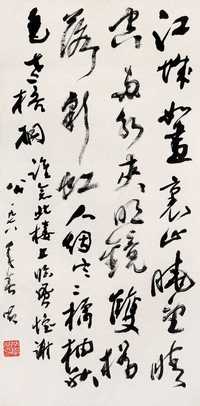 江城如畫裏山曉望晴
空兩水夾明鏡雙橋
落彩虹人烟寒橘柚秋
色老梧桐誰念北樓上臨風懷謝
公